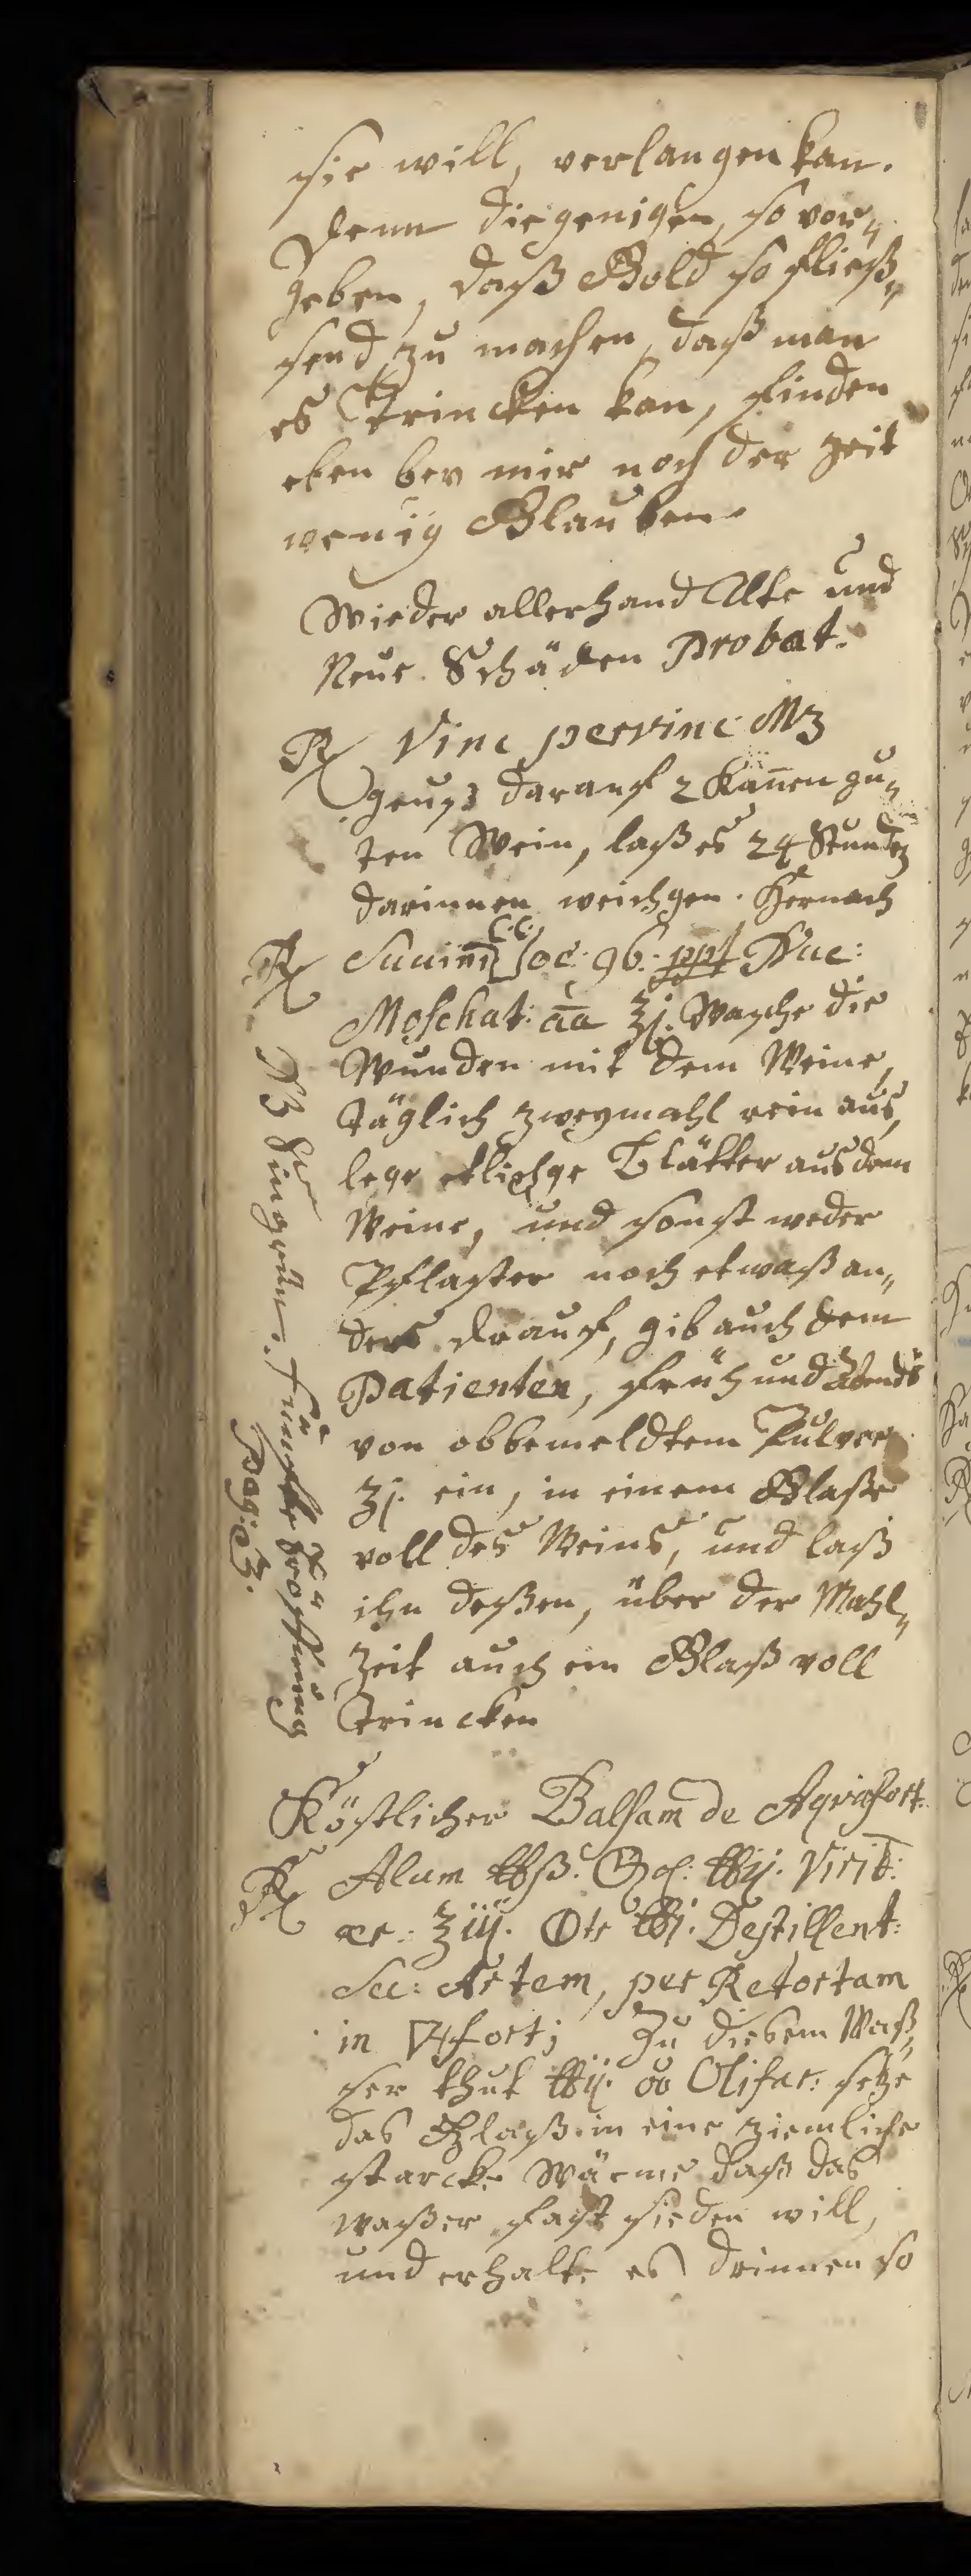 sie will, verlangen kan.
Denn diegenigen, so vor„
geben, daß Gold so fließ„
send zu machen, daß man
es trincken kan, finden
eben bey mir noch der zeit
wenig Glauben.
Wieder allerhand Alte und
Neue Schäden Probat.
℞ Vinc pervinc: M3
geuß darauf 2 Kañen gu„
ten Wein, laß es 24 Stunden
darinnen weichgen. Hernach
℞ Succini C.C. ppt Nuc:
Moschat: āā ʒj. Wasche die
Wunden mit dem Weine,
täglich zweymahl rein aus,
lege etlichge Blätter aus dem
Weine, und sonst weder
Pflaster noch etwaß an„
ders drauf, gib auch dem
Patienten, früh und Abends
von obbemeldtem Pulver
ʒj. ein, in einem Glaße
voll des Weins, und laß
ihn deßen, über der Mahl„
zeit auch ein Glaß voll
trincken
NB Singrün.
Pag: 3.
Köstlicher Balsam de Aqvafort.
℞ Alum ℔ß. ℔ij. Virid:
ær: ʒiij. ℔j. Destillent:
Sec: Artem, per Retortam
in 🜄fort; Zu diesem Waß„
ser thut ℔ij. Olivar: setze
das Glaß in eine ziemliche
starcke Wärme daß das
waßer fast sieden will,
und erhalte es drinnen so